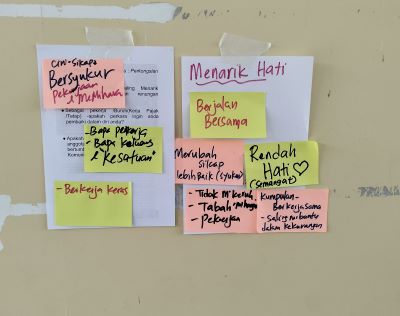 Ciri-Sikap2
Bersyukur
Pekerjaan
Perkongsian
Menarik
renungan
Sebagai pekerja
Kerja Pajak
(Tetap) -apakah perkara ingin anda
pembaiki dalam diri anda?
Apakah
anggota
bertumb
Komuni
- Bapa
- Bapa keluarga
& "Kesatuan"
- Berkerja keras
Menarik Hati
Berjalan
Bersama
Merubah
Sikap
lebih Baik (syukur)
Rendah
Hati ♡
(Semangat)
- Tidak
- Tabah
- Pekerjaan
Kumpulan -
Berkerjasama
- Saling membantu
dalam kekurangan